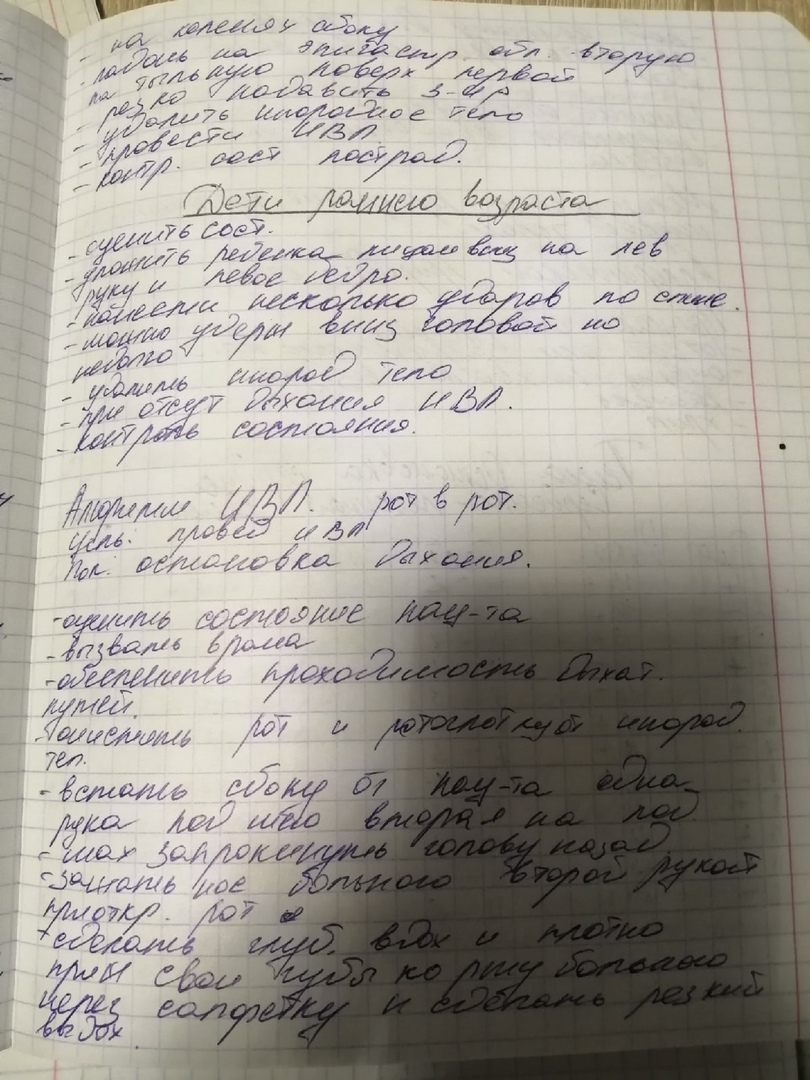 - на коленях сбоку
- ладонь на эпигастр. обл. вторую
на тыльную поверх первой
- резко надавить 3-4р
- удалить инородное тело
- провести ИВЛ
- контр. сост пострад.
Дети раннего возраста
- оценить сост.
- уложить ребенка лицом вниз на лев
руку и левое бедро.
- нанести несколько ударов по спине.
- можно удерж вниз головой но
недолго
- удалить инород тело
- при отсут дыхания ИВЛ.
- контроль состояния.
ИВЛ. рот в рот.
Цель. провед ИВЛ
Пок. остановка дыхания.
- оценить состояние пац-та
- вызвать врача
- обеспечить проходимость дыхат.
путей.
- очистить рот и ротоглотку от инород.
тел.
- встать сбоку от пац-та одна
рука под шею вторая на лоб
- мах запрокинуть голову назад
- зажать нос больного второй рукой
приоткр. рот
- сделать глуб. вдох и плотно
приж свои губы ко рту больного
через салфетку и сделать резкий
выдох